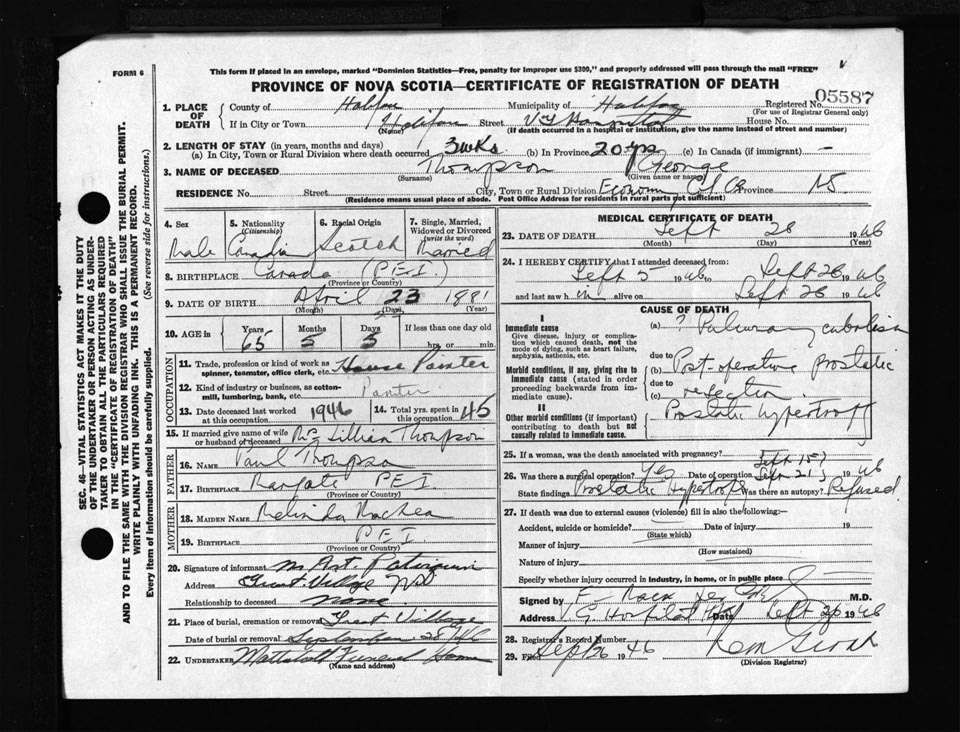 This form if placed in an envelope, marked "Dominion Statistics—Free, penalty for improper use $300," and properly addressed will pass through the mail "FREE"
FORM 6
PROVINCE OF NOVA SCOTIA—CERTIFICATE OF REGISTRATION OF DEATH
SEC. 46—VITAL STATISTICS ACT MAKES IT THE DUTY
OF THE UNDERTAKER OR PERSON ACTING AS UNDER-
TAKER TO OBTAIN ALL THE PARTICULARS REQUIRED
IN THE "CERTIFICATE OF REGISTRATION OF DEATH"
AND TO FILE THE SAME WITH THE DIVISION REGISTRAR WHO SHALL ISSUE THE BURIAL PERMIT.
WRITE PLAINLY WITH UNFADING INK. THIS IS A PERMANENT RECORD.
Every item of information should be carefully supplied. (See reverse side for instructions.)
1. PLACE OF DEATH County of Halifax Municipality of Halifax Registered No. 05587
(For use of Registrar General only)
If in City or Town Halifax Street V.G. Hospital House No.
(Name) (If death occurred in a hospital or institution, give the name instead of street and number)
2. LENGTH OF STAY (in years, months and days)
(a) In City, Town or Rural Division where death occurred 3 wks (b) In Province 20 yrs (c) In Canada (if immigrant) —
3. NAME OF DECEASED Thompson George
(Surname) (Given name or names)
RESIDENCE No. Street City, Town or Rural Division Economy Col Co Province NS
(Residence means usual place of abode. Post Office Address for residents in rural parts not sufficient)
4. Sex 5. Nationality (Citizenship) 6. Racial Origin 7. Single, Married, Widowed or Divorced (write the word)
Male Canadian Scotch Married
8. BIRTHPLACE Canada (P.E.I.)
(Province or Country)
9. DATE OF BIRTH April 23 1881
(Month) (Day) (Year)
10. AGE in Years Months Days If less than one day old
65 5 5 hrs. or min.
OCCUPATION
11. Trade, profession or kind of work as spinner, teamster, office clerk, etc. House Painter
12. Kind of industry or business, as cotton-mill, lumbering, bank, etc. Painter
13. Date deceased last worked at this occupation 1946 14. Total yrs. spent in this occupation 45
15. If married give name of wife or husband of deceased Mrs Lillian Thompson
FATHER
16. NAME Paul Thompson
17. BIRTHPLACE Margate P.E.I.
(Province or Country)
MOTHER
18. MAIDEN NAME Melinda MacKea
19. BIRTHPLACE P.E.I.
(Province or Country)
20. Signature of informant Art. Patriquin
Address Great Village N.S.
Relationship to deceased none
21. Place of burial, cremation or removal Great Village
Date of burial or removal September 28/46
22. UNDERTAKER Mattatall Funeral Home
MEDICAL CERTIFICATE OF DEATH
23. DATE OF DEATH Sept 28 1946
(Month) (Day) (Year)
24. I HEREBY CERTIFY that I attended deceased from:
Sept 5 1946 to Sept 26 1946
and last saw h im alive on Sept 26 1946
CAUSE OF DEATH
I
Immediate cause (a) ? Pulmonary embolism
Give disease, injury or complication which caused death, not the mode of dying, such as heart failure, asphyxia, asthenia, etc.
due to
Morbid conditions, if any, giving rise to immediate cause (stated in order proceeding backwards from immediate cause). (b) Post-operative prostatic
due to
(c) resection
II
Other morbid conditions (if important) contributing to death but not causally related to immediate cause. Prostatic hypertrophy
25. If a woman, was the death associated with pregnancy?
26. Was there a surgical operation? Yes Date of operation Sept 15? Sept 21 1946
State findings Prostatic Hypertrophy Was there an autopsy? Refused
27. If death was due to external causes (violence) fill in also the following:—
Accident, suicide or homicide? Date of injury 19
(State which)
Manner of injury
(How sustained)
Nature of injury
Specify whether injury occurred in industry, in home, or in public place
Signed by M.D.
Address V.G. Hospital Hfx Date Sept 26 1946
28. Registrar's Record Number
29. Filed Sept 26 1946
(Division Registrar)